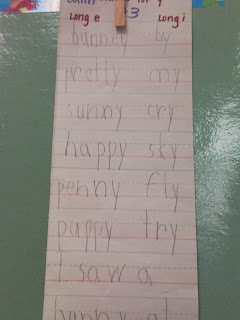 for y
Long e 3 Long i
bunney by
pretty my
sunny cry
happy sky
penny fly
puppy try
I saw a
bunny at